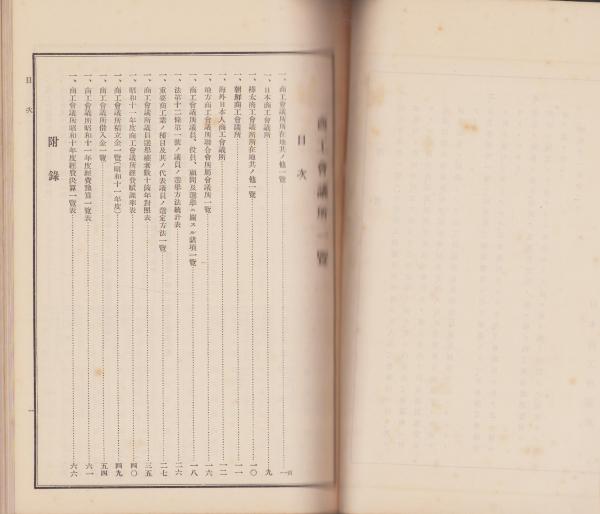 商工會議所一覽
目次
一、商工會議所所在地其ノ他一覽……一頁
一、日本商工會議所……九
一、樺太商工會議所所在地其ノ他一覽……一〇
一、朝鮮商工會議所……一一
一、海外日本人商工會議所……一二
一、地方商工會議所聯合會所屬會議所一覽……一六
一、商工會議所議員、役員、顧問及選擧ニ關スル諸項一覽……一八
一、法第十二條第一號ノ議員ノ選擧方法統計表……二六
一、重要商工業ノ種目及其ノ代表議員ノ選定方法一覽……二七
一、商工會議所議員選擧權者數十箇年對照表……三五
一、昭和十一年度商工會議所經費賦課率表……四〇
一、商工會議所積立金一覽(昭和十一年度)……四九
一、商工會議所借入金一覽……五四
一、商工會議所昭和十一年度經費豫算一覽表……六一
一、商工會議所昭和十年度經費決算一覽表……六六
附錄
目次
一